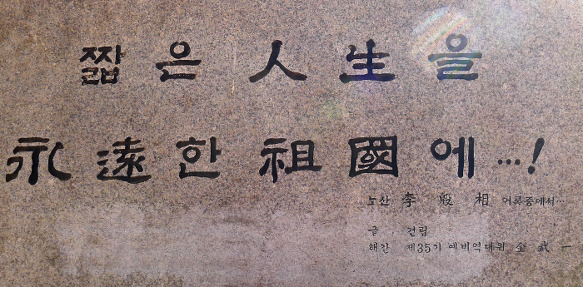 짧은 人生을
永遠한 祖國에…!
노산 李殷相 어록중에서…
글 건립
해간 제35기 예비역대원 金武一